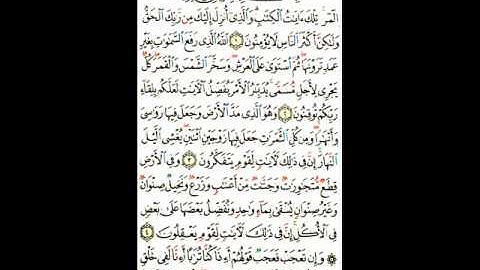 الٓمٓر ۚ تِلْكَ ءَايَٰتُ ٱلْكِتَٰبِ ۗ وَٱلَّذِىٓ أُنزِلَ إِلَيْكَ مِن رَّبِّكَ ٱلْحَقُّ
وَلَٰكِنَّ أَكْثَرَ ٱلنَّاسِ لَا يُؤْمِنُونَ ١ ٱللَّهُ ٱلَّذِى رَفَعَ ٱلسَّمَٰوَٰتِ بِغَيْرِ
عَمَدٍ تَرَوْنَهَا ۖ ثُمَّ ٱسْتَوَىٰ عَلَى ٱلْعَرْشِ ۖ وَسَخَّرَ ٱلشَّمْسَ وَٱلْقَمَرَ ۖ كُلٌّ
يَجْرِى لِأَجَلٍ مُّسَمًّى ۚ يُدَبِّرُ ٱلْأَمْرَ يُفَصِّلُ ٱلْءَايَٰتِ لَعَلَّكُم بِلِقَآءِ
رَبِّكُمْ تُوقِنُونَ ٢ وَهُوَ ٱلَّذِى مَدَّ ٱلْأَرْضَ وَجَعَلَ فِيهَا رَوَٰسِىَ
وَأَنْهَٰرًا ۖ وَمِن كُلِّ ٱلثَّمَرَٰتِ جَعَلَ فِيهَا زَوْجَيْنِ ٱثْنَيْنِ ۖ يُغْشِى ٱلَّيْلَ
ٱلنَّهَارَ ۚ إِنَّ فِى ذَٰلِكَ لَءَايَٰتٍ لِّقَوْمٍ يَتَفَكَّرُونَ ٣ وَفِى ٱلْأَرْضِ
قِطَعٌ مُّتَجَٰوِرَٰتٌ وَجَنَّٰتٌ مِّنْ أَعْنَٰبٍ وَزَرْعٌ وَنَخِيلٌ صِنْوَانٌ
وَغَيْرُ صِنْوَانٍ يُسْقَىٰ بِمَآءٍ وَٰحِدٍ وَنُفَضِّلُ بَعْضَهَا عَلَىٰ بَعْضٍ
فِى ٱلْأُكُلِ ۚ إِنَّ فِى ذَٰلِكَ لَءَايَٰتٍ لِّقَوْمٍ يَعْقِلُونَ ٤
۞ وَإِن تَعْجَبْ فَعَجَبٌ قَوْلُهُمْ أَءِذَا كُنَّا تُرَٰبًا أَءِنَّا لَفِى خَلْقٍ